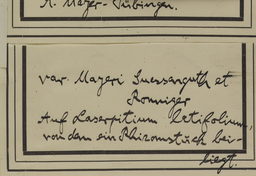 A. Mayer-Tübingen.
var. Mayeri Suessenguth et
Ronniger
Auf Laserpitium latifolium,
von dem ein Rhizomstück bei-
liegt.